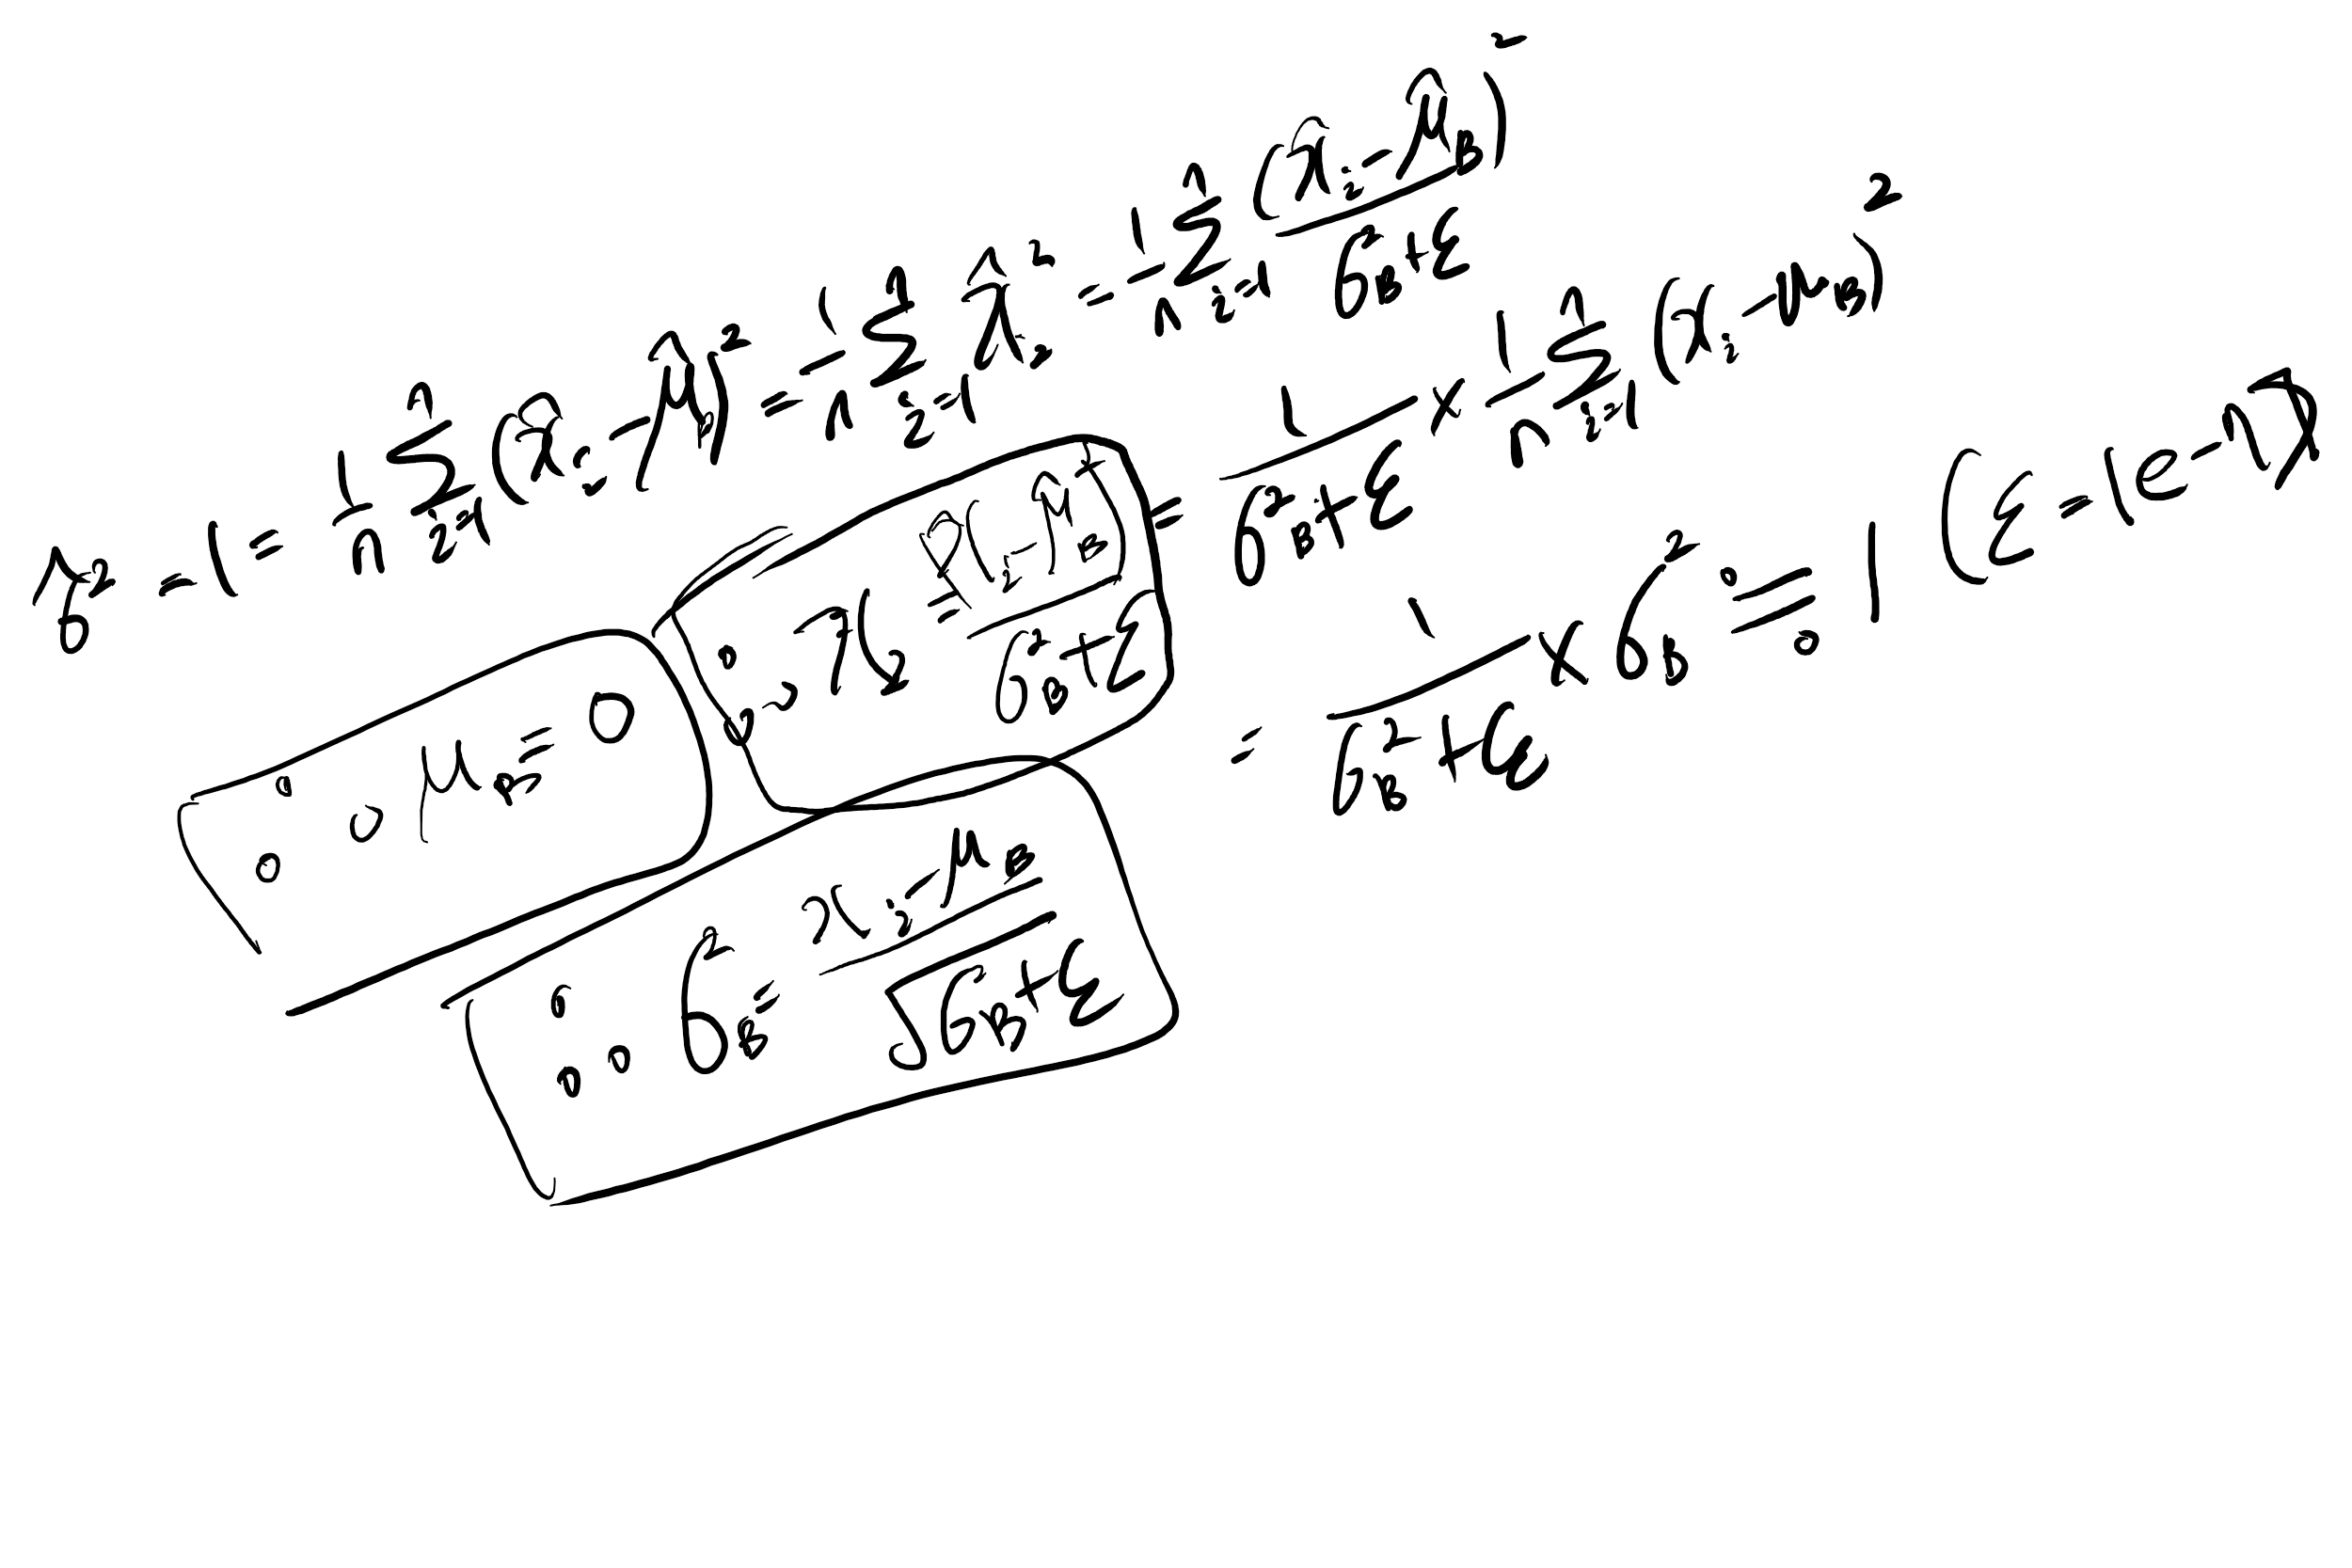 γ̂_B² = 1 = 1/n Σ_{i=1}^{n} (x̂_i - μ̂)² = 1/n Σ_{i=1}^{n} x̂_i² = 1/n Σ_{i=1}^{n} (x̂_i - μ̂_B)² / σ_B² + ε
= 1/(σ_B² + ε) × 1/n Σ_{i=1}^{n} (x_i - μ_B)²
= 1/(σ_B² + ε) × σ_B² ≒ 1 (ε = 1e-7)
∴ μ_B = 0
∵ x̂_i = (x̂_i - μ̂_B)/(σ_B² + ε)
∴ σ_B² = (x_i - μ_B)/√(σ_B² + ε)